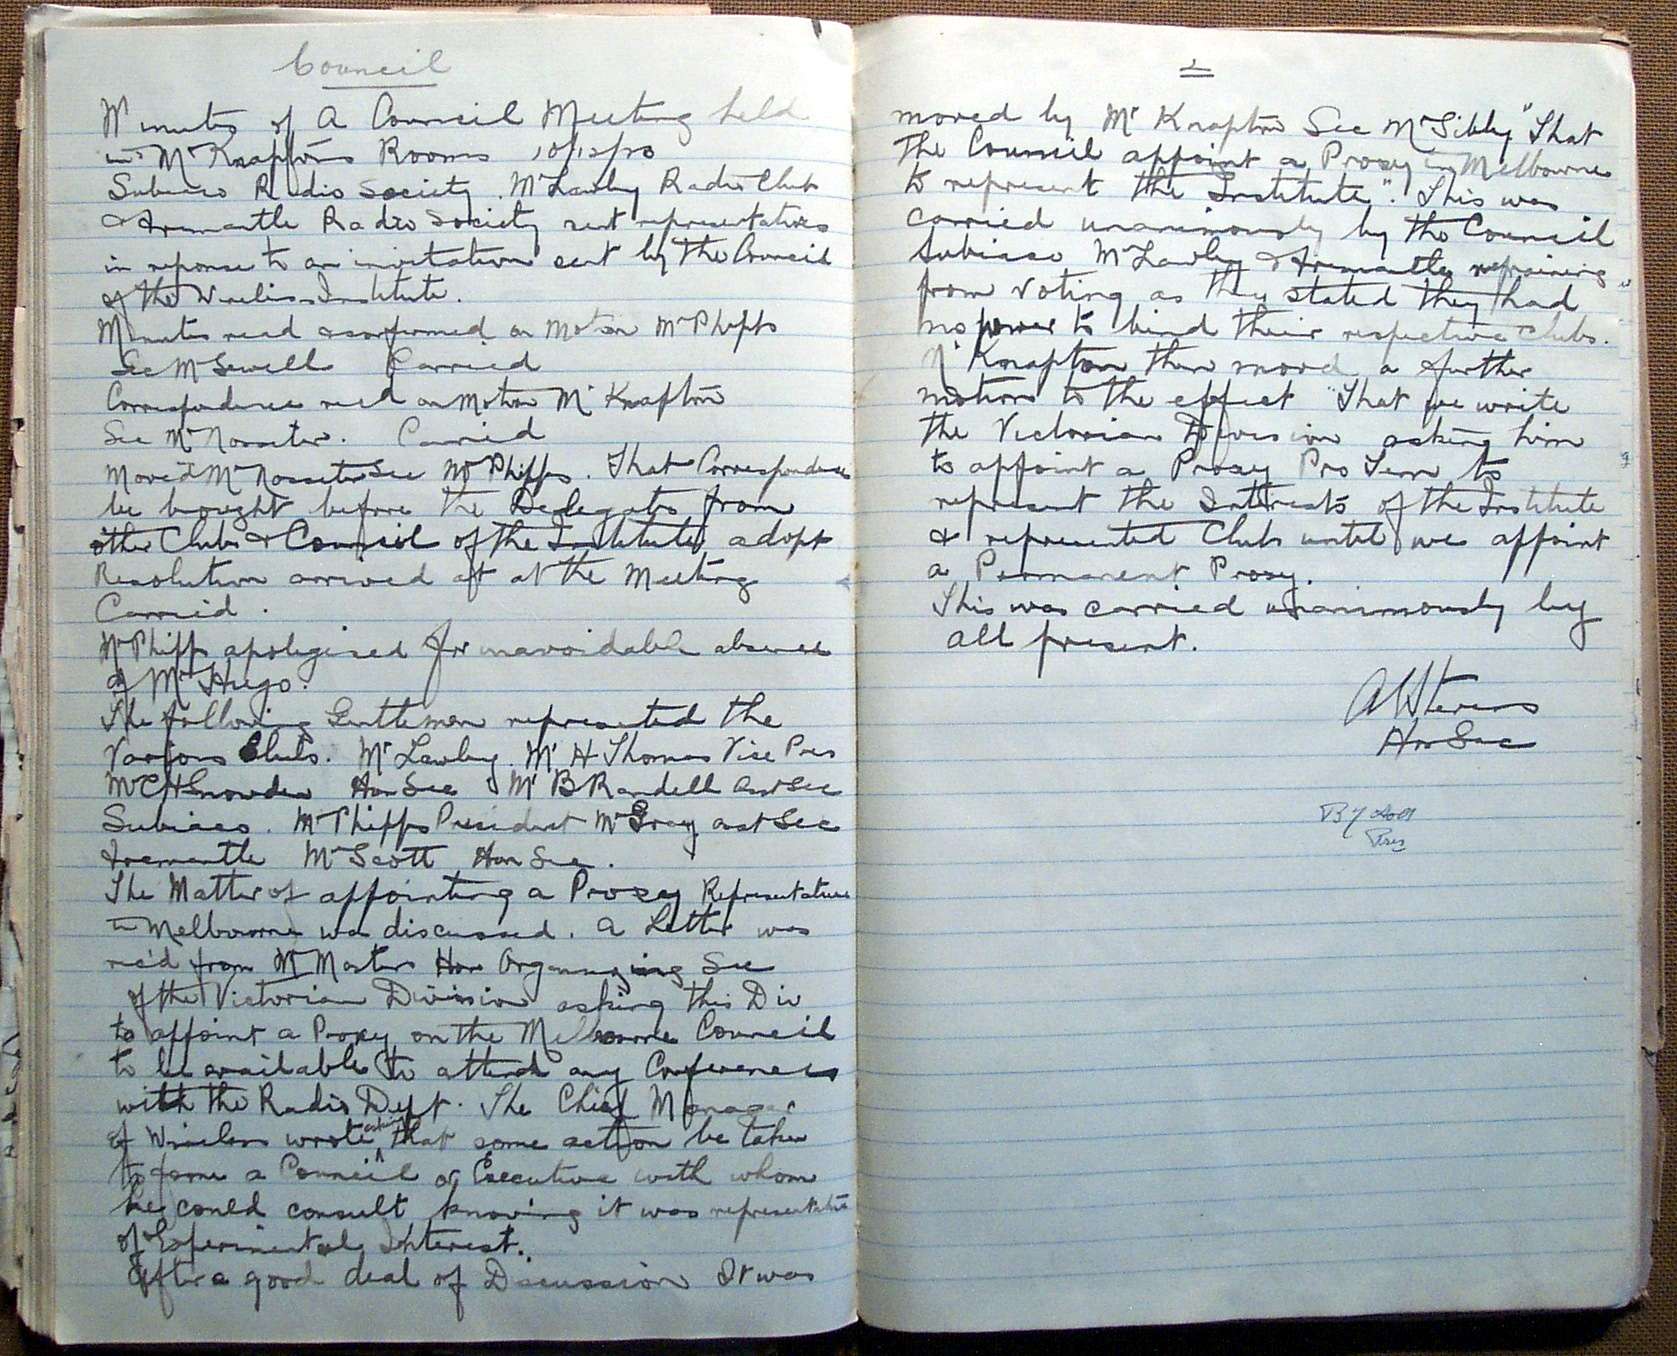 Council
Minutes of A Council Meeting held
in Mr Knapton's Rooms
Subiaco Radio Society. Mt Lawley Radio Club
& Fremantle Radio Society sent representatives
in reponse to an invitation sent by the Council
of the Wireless Institute.
Minutes read & confirmed on Motion Mr Phipps
Sec Mr Sewell Carried
Correspondence read on Motion Mr Knapton
Sec Mr Rosseter. Carried
Moved Mr Rosseter Sec Mr Phipps. That Correspondence
be brought before the Delegates from
other Clubs & Council of the Institute adopt
Resolution arrived at at the Meeting
Carried.
Mr Phipps apologised for unavoidable absence
of Mr Hugo.
The following Gentlemen represented the
Various Clubs. Mt Lawley. Mr H Thomas Vice Pres
Mr C H Snowden Hon Sec Mr B Randell asst Sec
Subiaco. Mr Phipps President Mr Gray asst Sec
Fremantle Mr Scott Hon Sec.
The Matter of appointing a Proxy Representative
in Melbourne was discussed. A Letter was
rec'd from Mr Masters Hon Organizing Sec
of the Victorian Division asking this Div
to appoint a Proxy on the Melbourne Council
to be available to attend any Conferences
with the Radio Dept. The Chief Manager
of Wireless wrote asking that some action be taken
to form a Council or Executive with whom
he could consult knowing it was representative
of Experimental Interest.
After a good deal of Discussion It was
2
moved by Mr Knapton Sec Mr Sibly "That
the Council appoint a Proxy in Melbourne
to represent the Institute". This was
carried unanimously by the Council
Subiaco Mt Lawley & Fremantle refraining
from voting as they stated they had
no power to bind their respective Clubs.
Mr Knapton then moved a further
motion to the effect "That we write
the Victorian Division asking him
to appoint a Proxy Pro Tem to
represent the Interests of the Institute
& represented Clubs until we appoint
a Permanent Proxy.
This was carried unanimously by
all present.
A Stevens
Hon Sec
Pres